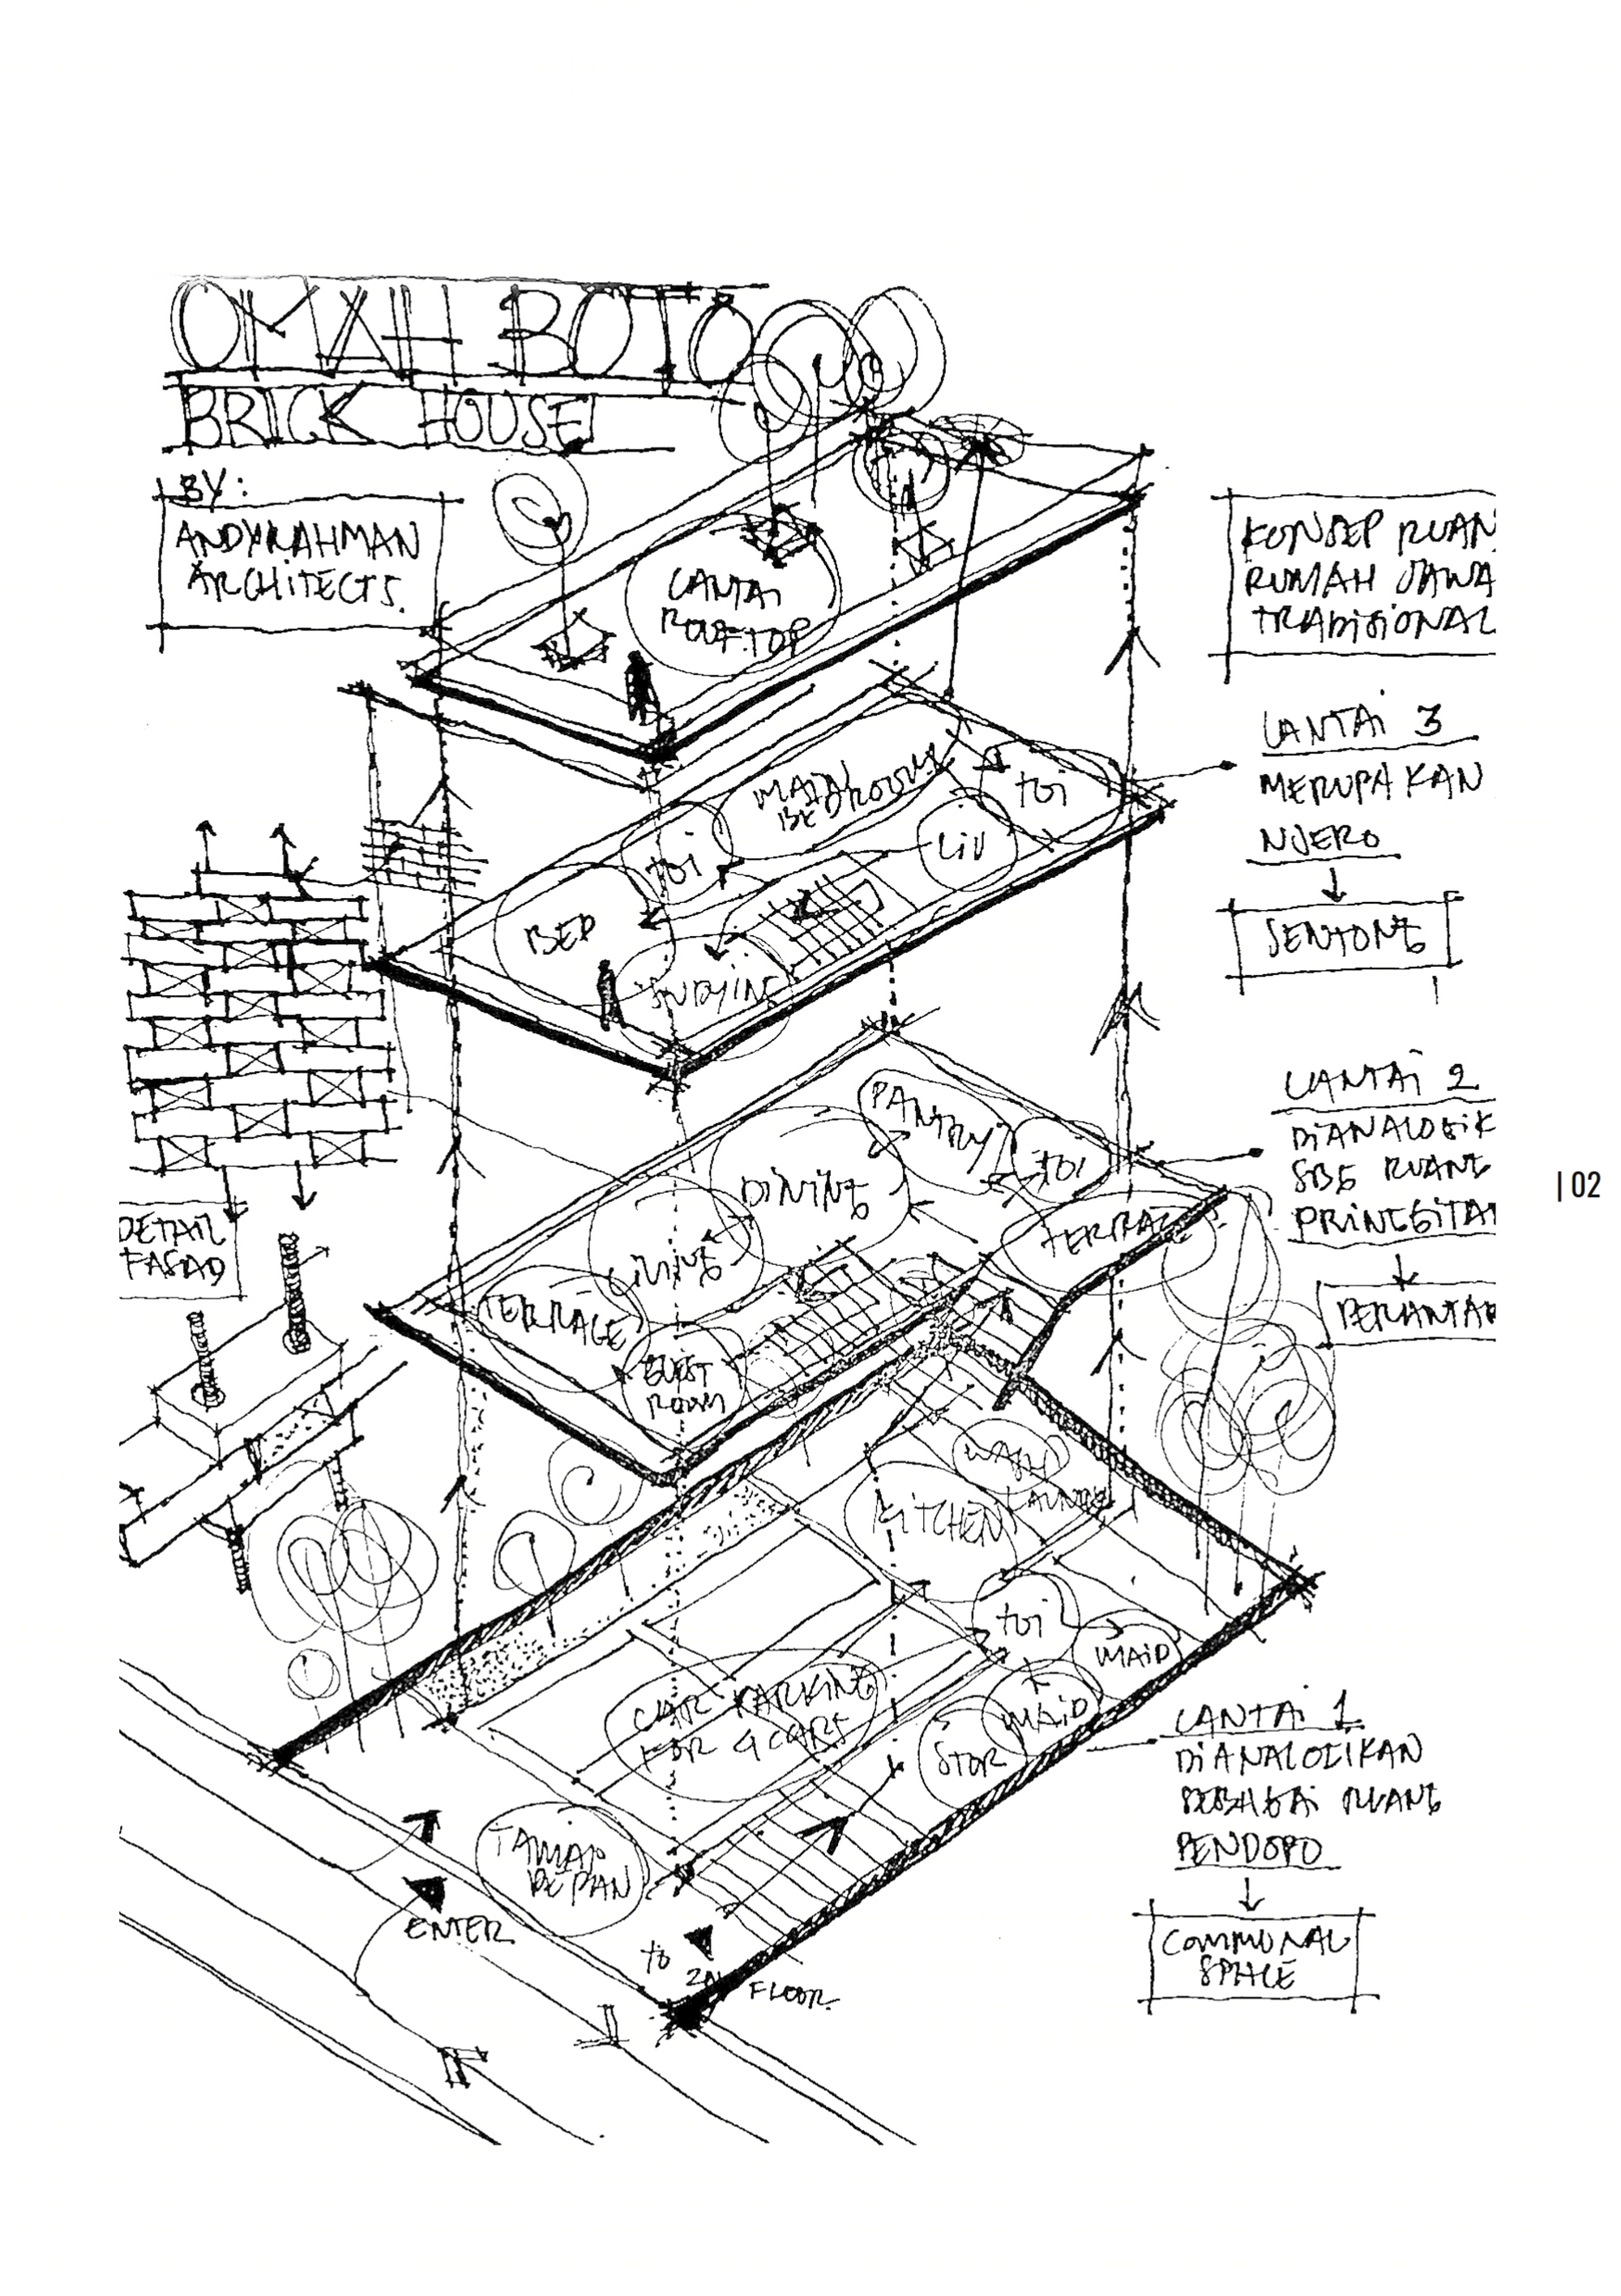 OMAH BOTO
BRICK HOUSE
BY:
ANDYRAHMAN
ARCHITECTS.
LANTAI
ROOFTOP
KONSEP RUAN
RUMAH JAWA
TRADISIONAL
LANTAI 3
MERUPAKAN
NJERO
SENTONG
MAIN
BEDROOM
toi
toi
LIV
BED
STUDYING
LANTAI 2
DIANALOGIK
SBG RUANG
PRINGGITAN
PERANTAR
PANTRY
toi
DINING
TERRACE
LIVING
TERRACE
GUEST
ROOM
DETAIL
FASAD
WASH
LAUNDRY
KITCHEN
toi
MAID
MAID
STOR
CAR PARKING
FOR 4 CARS
TAMAN
DEPAN
ENTER
to 2ND FLOOR
LANTAI 1
DIANALOGIKAN
SEBAGAI RUANG
PENDOPO
COMMUNAL
SPACE
| 02